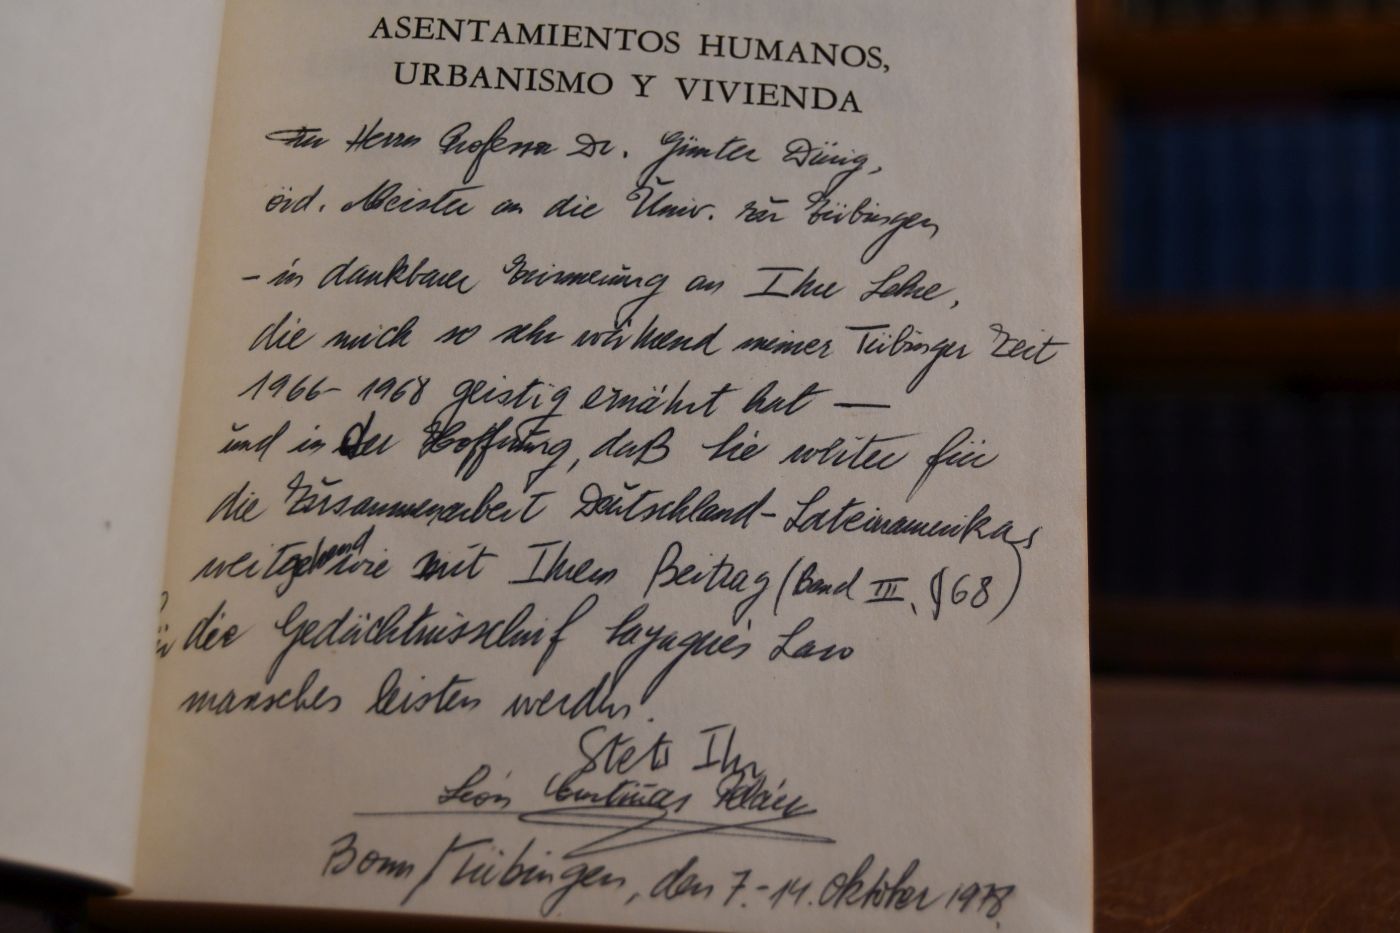 ASENTAMIENTOS HUMANOS,
URBANISMO Y VIVIENDA
Herrn Professor Dr. Günter Dürig,
ord. Meister an die Univ. zu Tübingen
– in dankbarer Erinnerung an Ihre Lehre,
die mich so sehr während meiner Tübinger Zeit
1966–1968 geistig ernährt hat —
und in der Hoffnung, daß Sie weiter für
die Zusammenarbeit Deutschland-Lateinamerikas
weitgehend wie mit Ihrem Beitrag (Band III, § 68)
für die Gedächtnisschrif Sayagués Laso
manches leisten werden.
Stets Ihr
León Cortiñas Peláez
Bonn/Tübingen, den 7.-14. Oktober 1978.